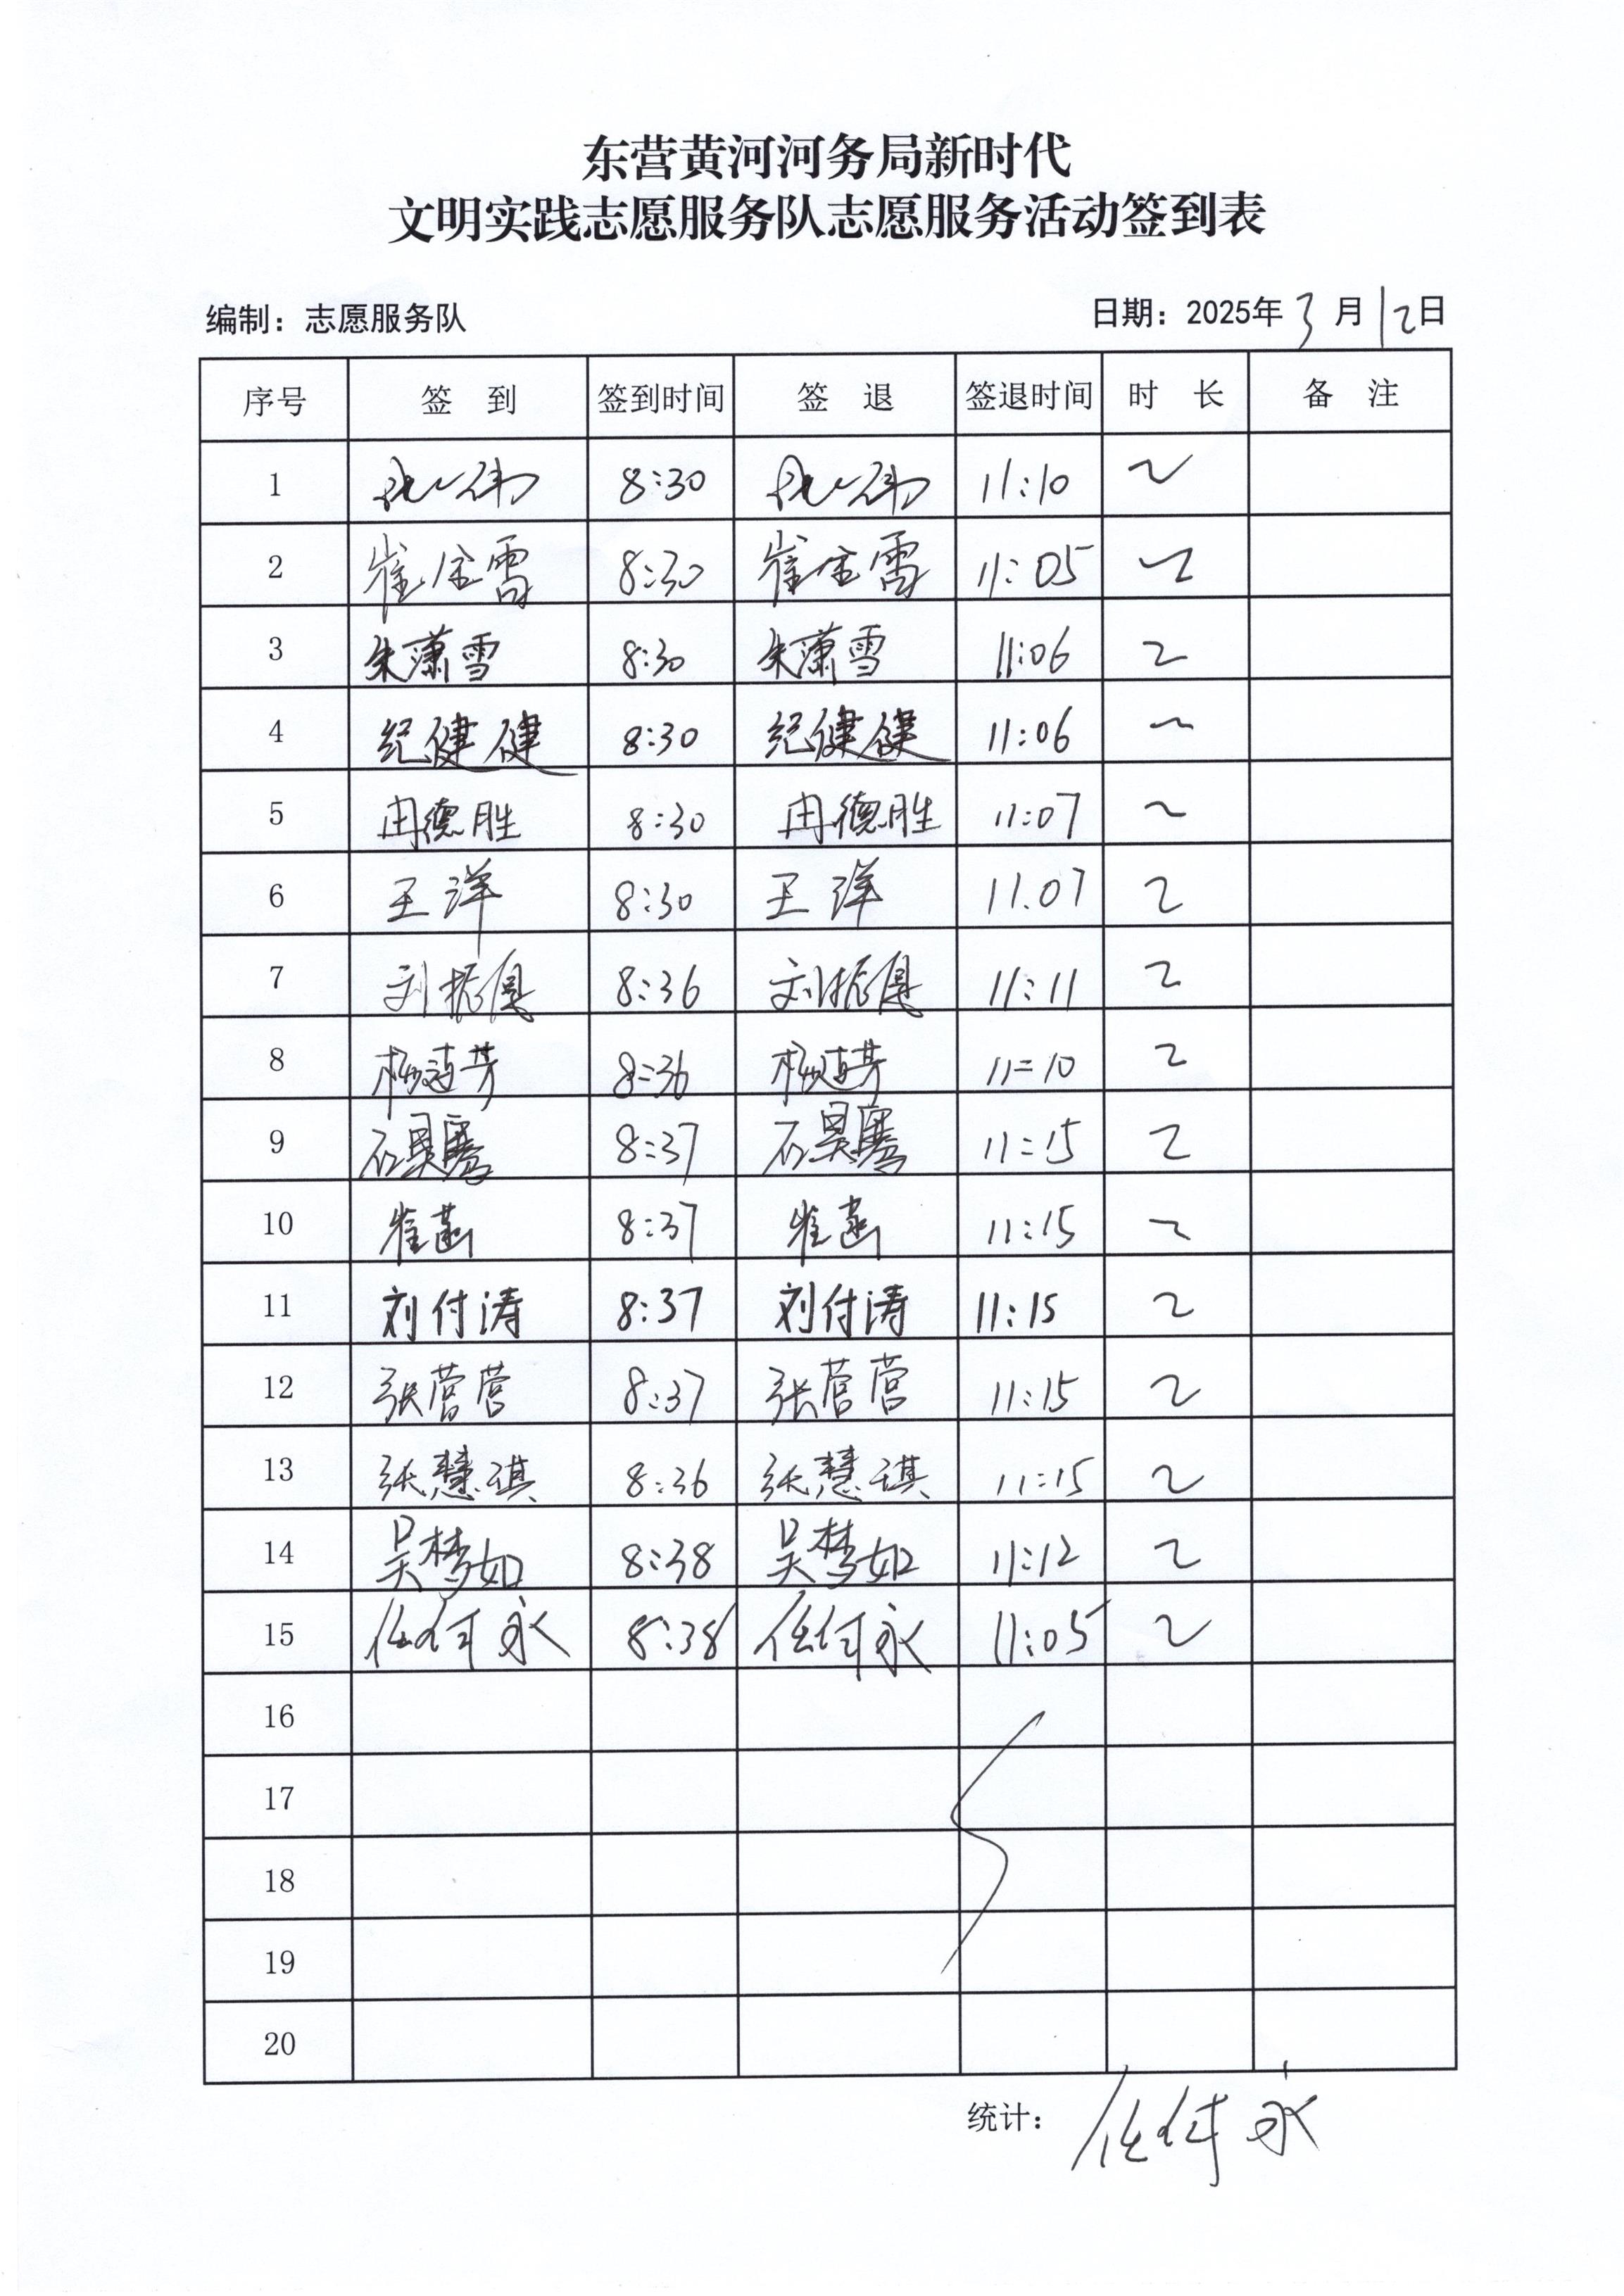 东营黄河河务局新时代
文明实践志愿服务队志愿服务活动签到表
编制：志愿服务队 日期：2025年3月12日
序号 签到 签到时间 签退 签退时间 时长 备注
1 8:30 11:10 2
2 8:30 11:05 2
3 朱潇雪 8:30 朱潇雪 11:06 2
4 纪健健 8:30 纪健健 11:06 2
5 冉德胜 8:30 冉德胜 11:07 2
6 王洋 8:30 王洋 11.07 2
7 刘振 8:36 刘振 11:11 2
8 杨 8:36 杨 11:10 2
9 石昊骞 8:37 石昊骞 11:15 2
10 崔菡 8:37 崔菡 11:15 2
11 刘付涛 8:37 刘付涛 11:15 2
12 张营营 8:37 张营营 11:15 2
13 张慧琪 8:36 张慧琪 11:15 2
14 吴梦如 8:38 吴梦如 11:12 2
15 任付永 8:38 任付永 11:05 2
16
17
18
19
20
统计： 任付永